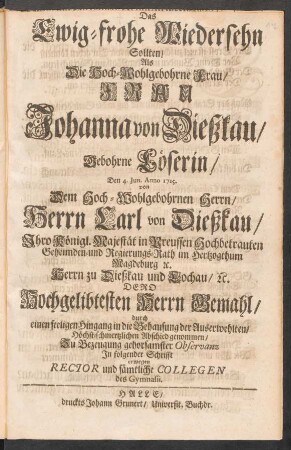 Das
Ewig-frohe Wiedersehn
Sollten/
Als
Die Hoch-Wohlgebohrne Frau/
FRAU
Johanna von Dießkau/
Gebohrne Löserin/
Den 4. Jun. Anno
von
Dem Hoch-Wohlgebohrnen Herrn/
Herrn Carl von Dießkau/
Ihro Königl. Majestät in Preussen Hochbetrauten
Geheimden und Regierungs-Rath im Hertzogthum
Magdeburg ꝛc.
Herrn zu Dießkau und Lochau/ ꝛc.
DERO
Hochgelibtesten Herrn Gemahl/
durch
einen seeligen Hingang in die Behausung der Außerwehlten/
Höchst-schmertzlichen Abschied genommen/
Zu Bezeugung gehorsamster Observanz
In folgender Schrifft
erwegen
RECTOR und sämtliche COLLEGEN
des Gymnasii.
HALLE/
druckts Johann Grunert/ Universit. Buchdr.